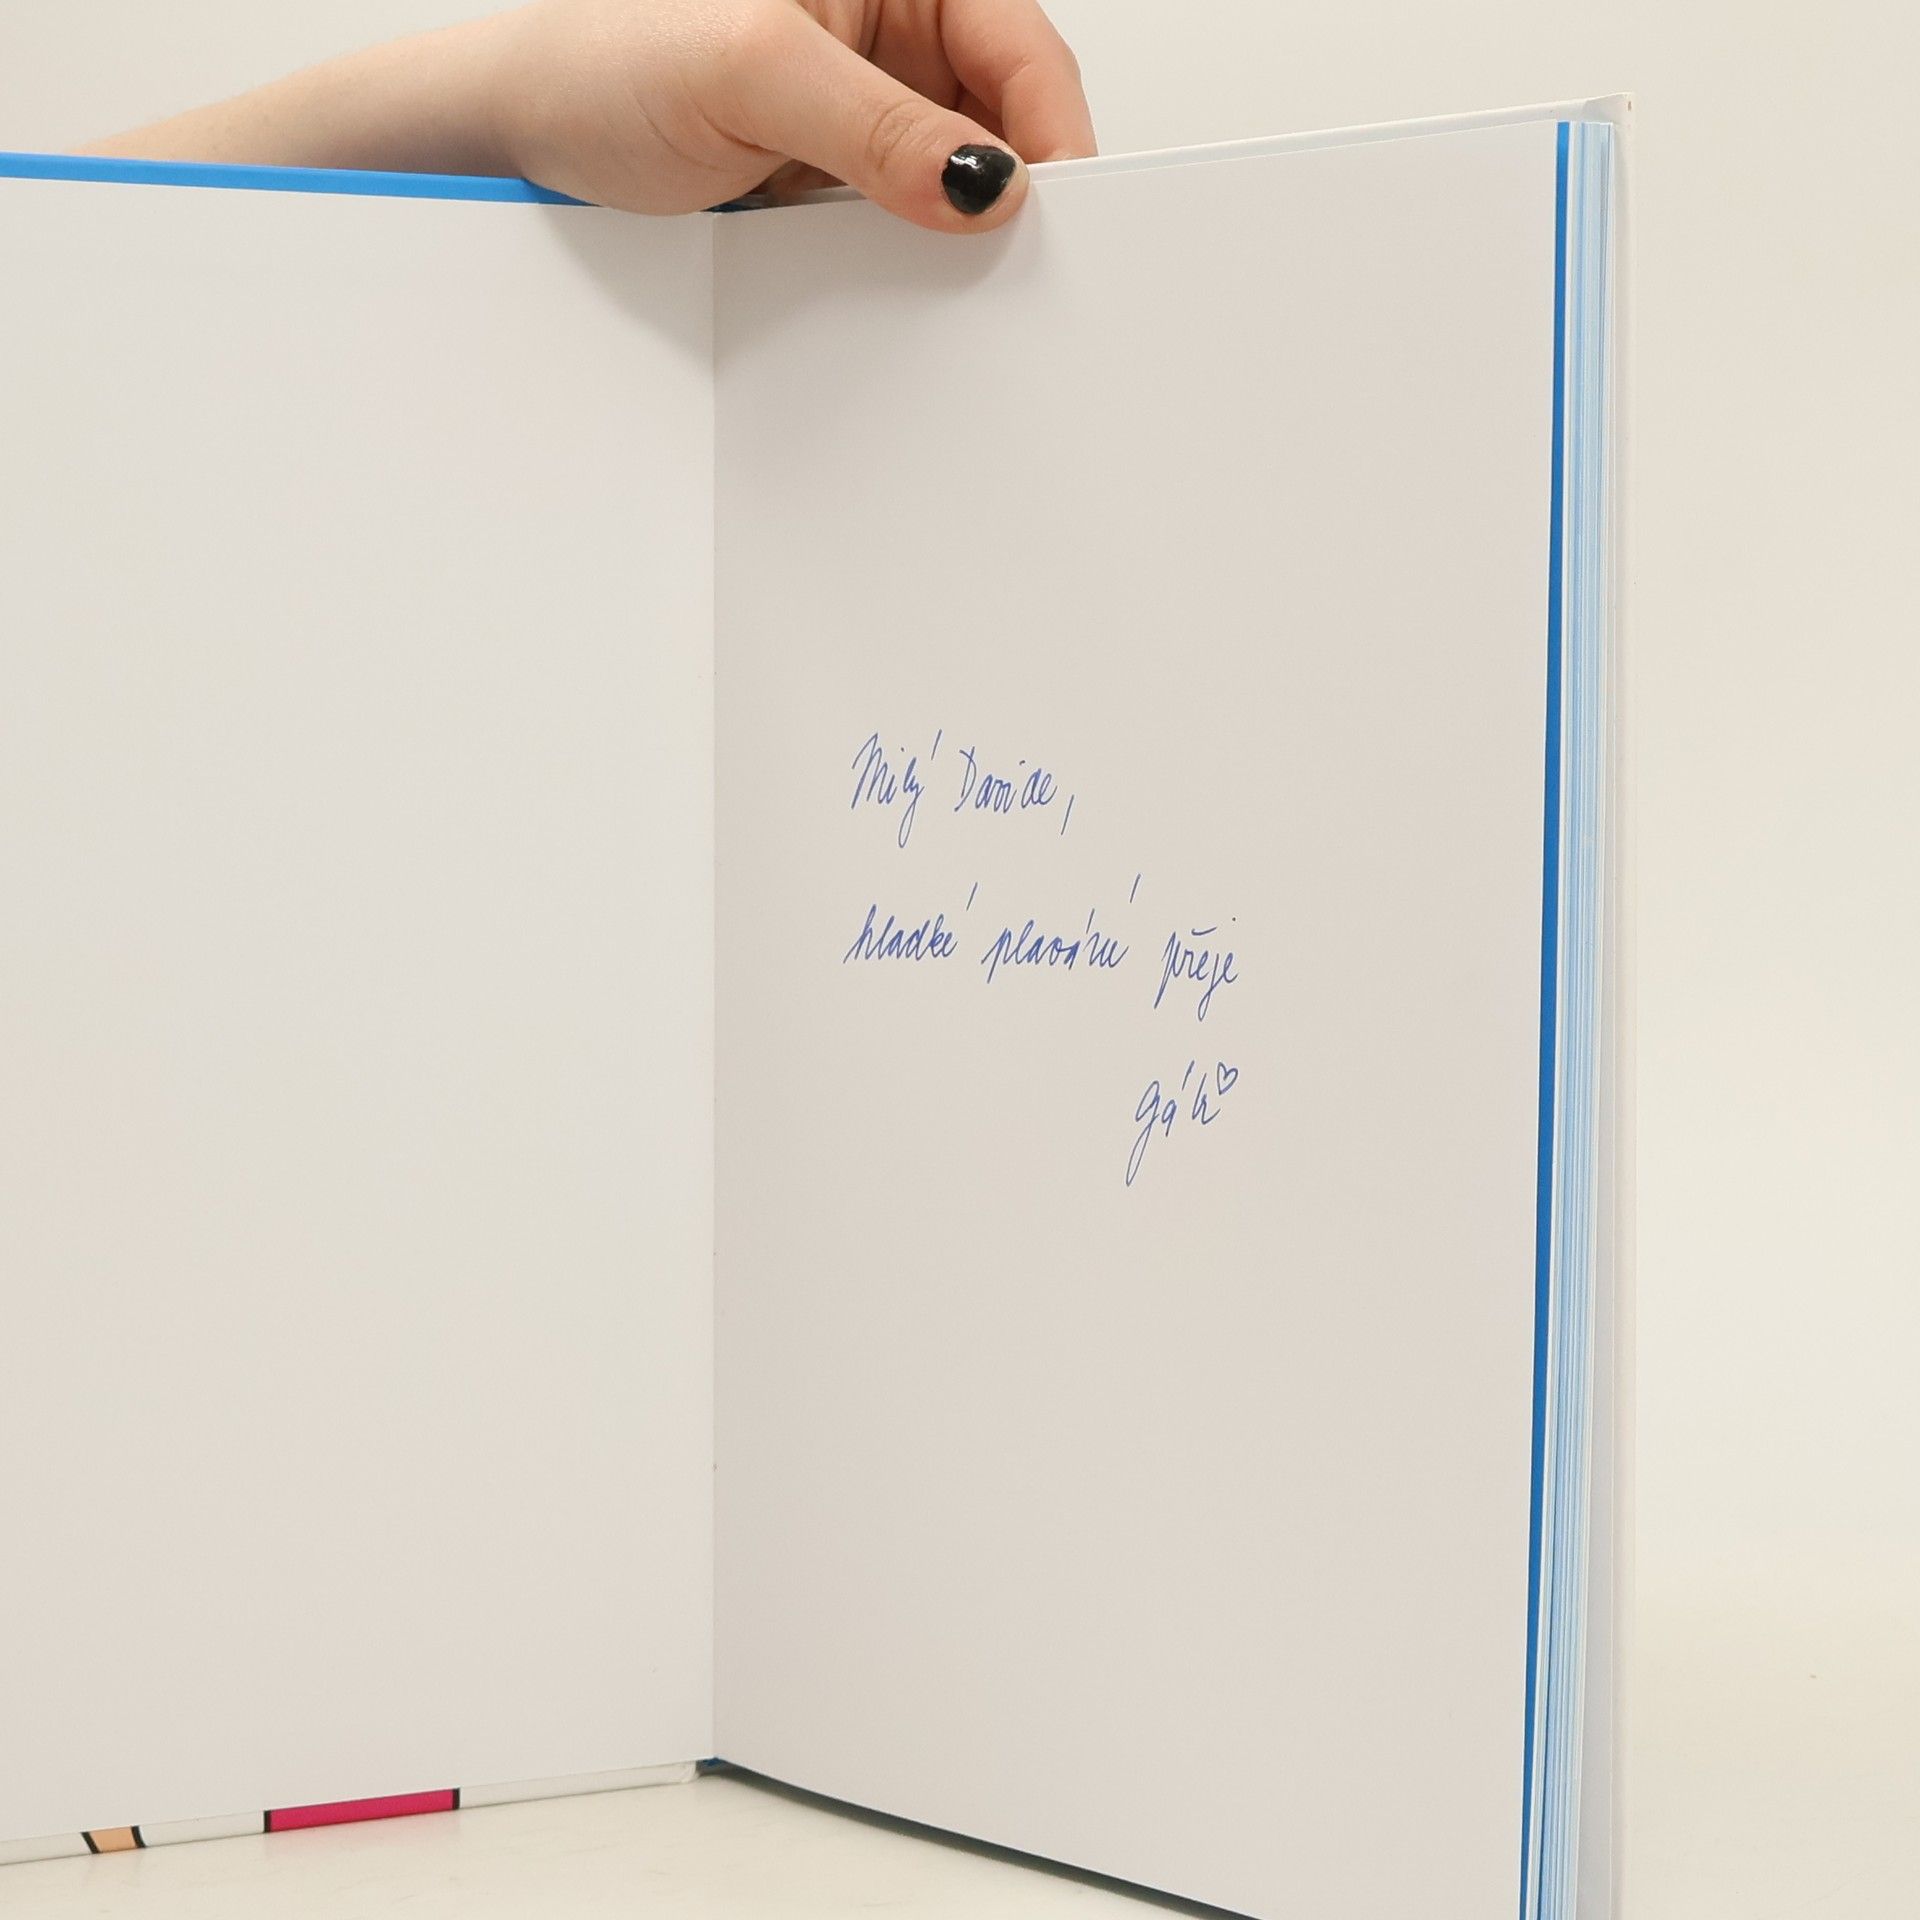 Milý Davide,
hladké plavání přeje
Gák♡